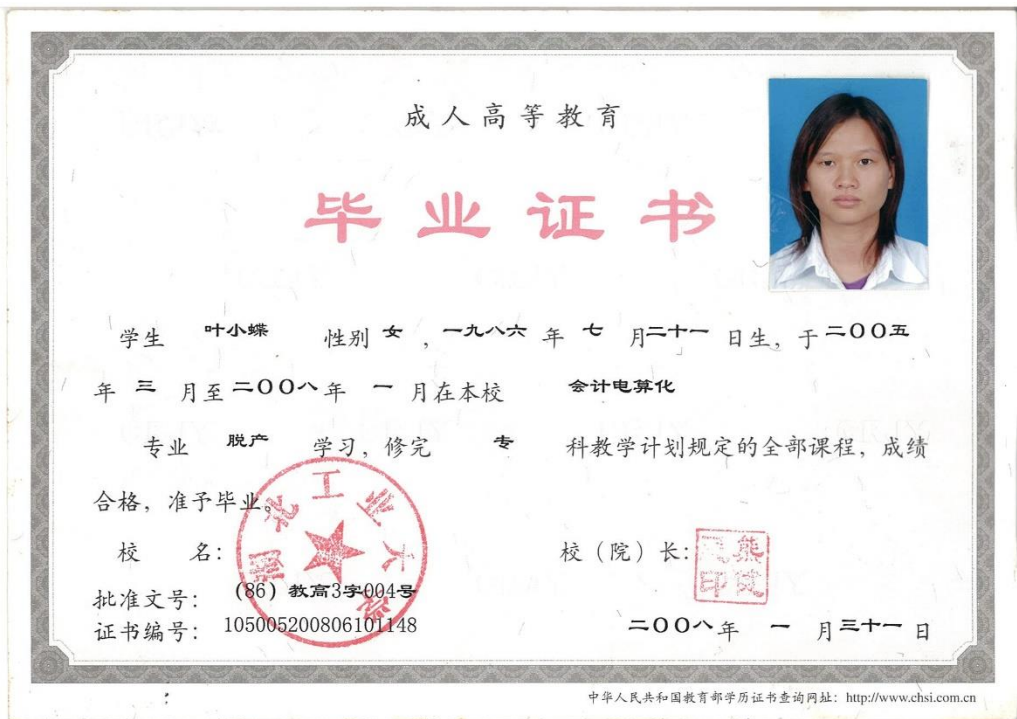 成人高等教育
毕业证书
学生 叶小蝶 性别 女 , 一九八六 年 七 月二十一 日生, 于 二00五
年 三 月至 二00八 年 一 月在本校 会计电算化
专业 脱产 学习, 修完 专 科教学计划规定的全部课程, 成绩
合格, 准予毕业。
湖北工业大学
校 名: 校（院）长:
批准文号: (86) 教高3字004号
证书编号: 105005200806101148 二00八 年 一 月三十一 日
中华人民共和国教育部学历证书查询网址: http://www.chsi.com.cn